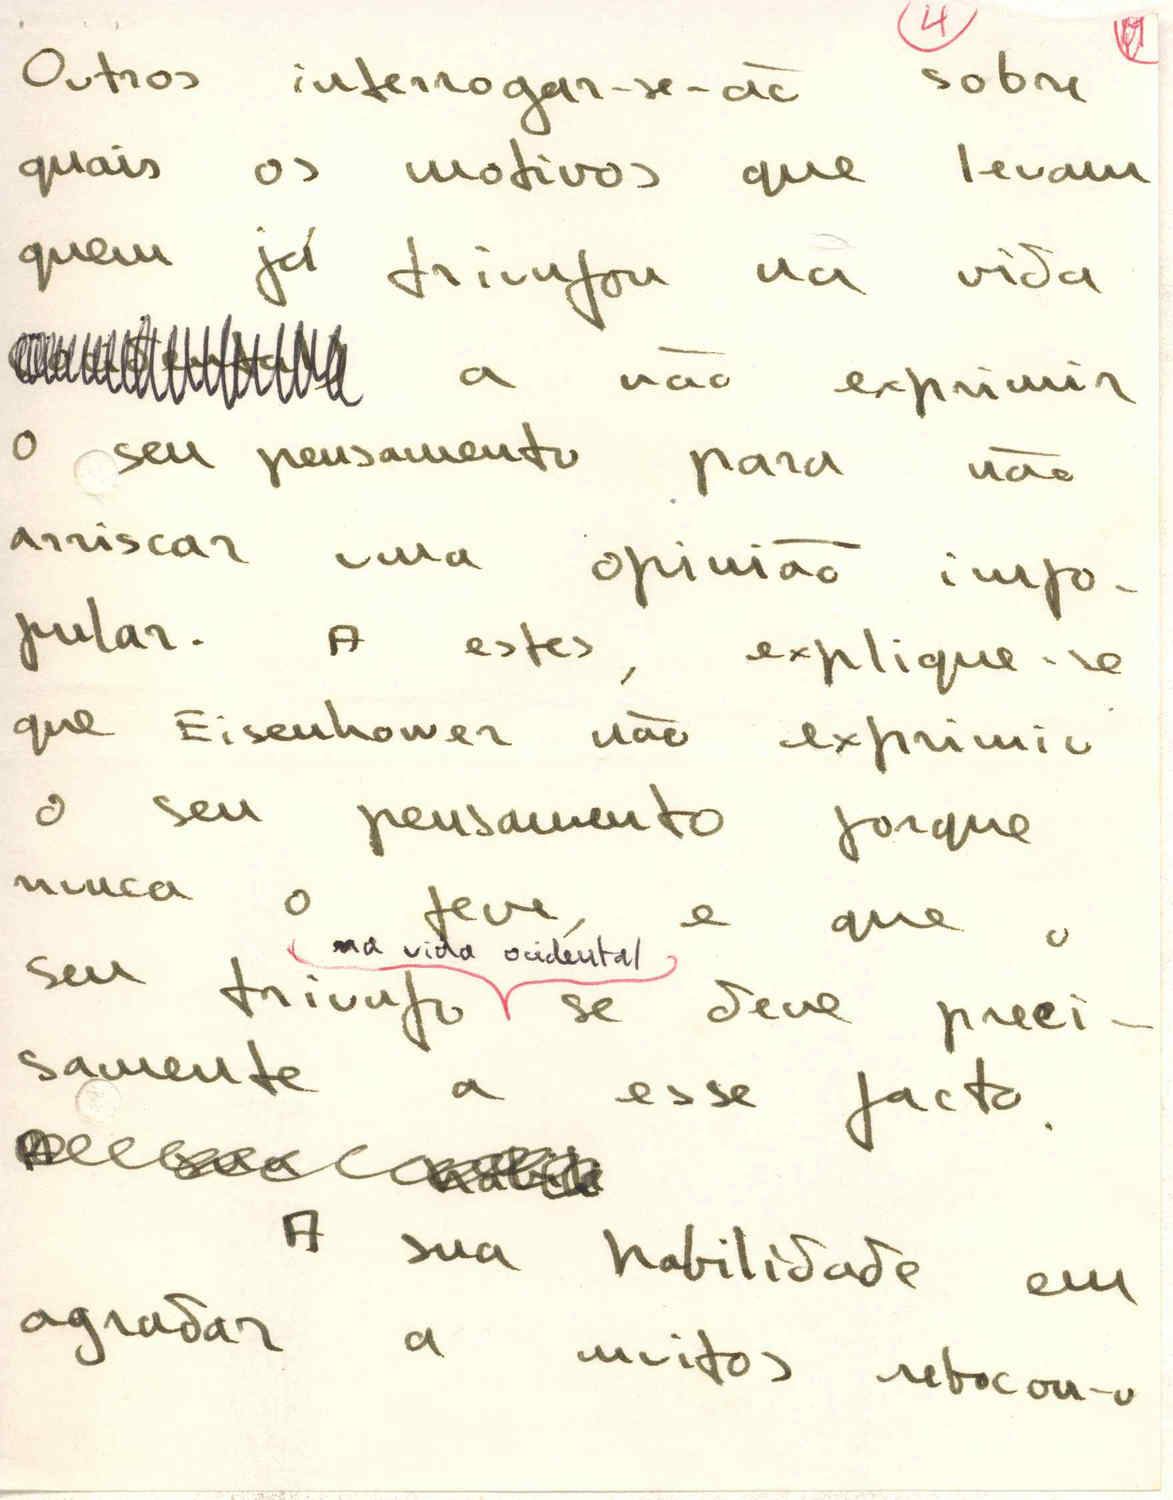 4
Outros interrogar-se-ão sobre
quais os motivos que levam
quem já triunfou na vida
a não exprimir
o seu pensamento para não
arriscar uma opinião impo-
pular. A estes, explique-se
que Eisenhower não exprimiu
o seu pensamento porque
nunca o teve, e que o
na vida ocidental
seu triunfo se deve preci-
samente a esse facto.
A sua habili
A sua habilidade em
agradar a muitos rebocou-o